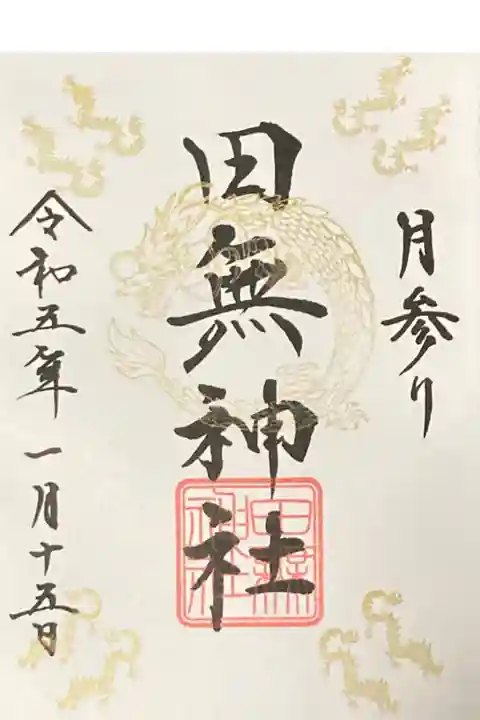 月参り
田無神社
田無
神社
令和五年一月十五日